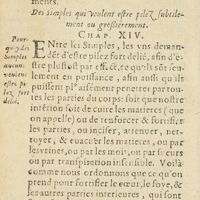 ments.
Des Simples qui veulent estre pilez subtile-
ment ou grossierement.
CHAP. XIV.
Pour-
quoy des
Simples
aucuns
veulent
estre pi-
lez fort
delié.
ENtre les Simples, les vns deman-
dẽt d'estre pilez fort delié, afin d'e-
stre plustost par effect, ce qu'ils sõt seu-
lement en puissance, afin aussi qu'ils
puissent plus aisemẽt penetrer par toutes
les parties du corps: soit que nostre
intẽtion soit de cuire les matieres (que
on appelle) ou de renforcer & fortifier
les parties, ou inciser, attenuer, net-
toyer, & euacuer les matieres, ou par
les vrines, ou par les mois, ou par sueurs
ou par transpiration insensible. Voilà
comme nous ordonnons que ce qu'on
prend pour fortifier le cœur, le foye, &
les autres parties interieures, qui sont